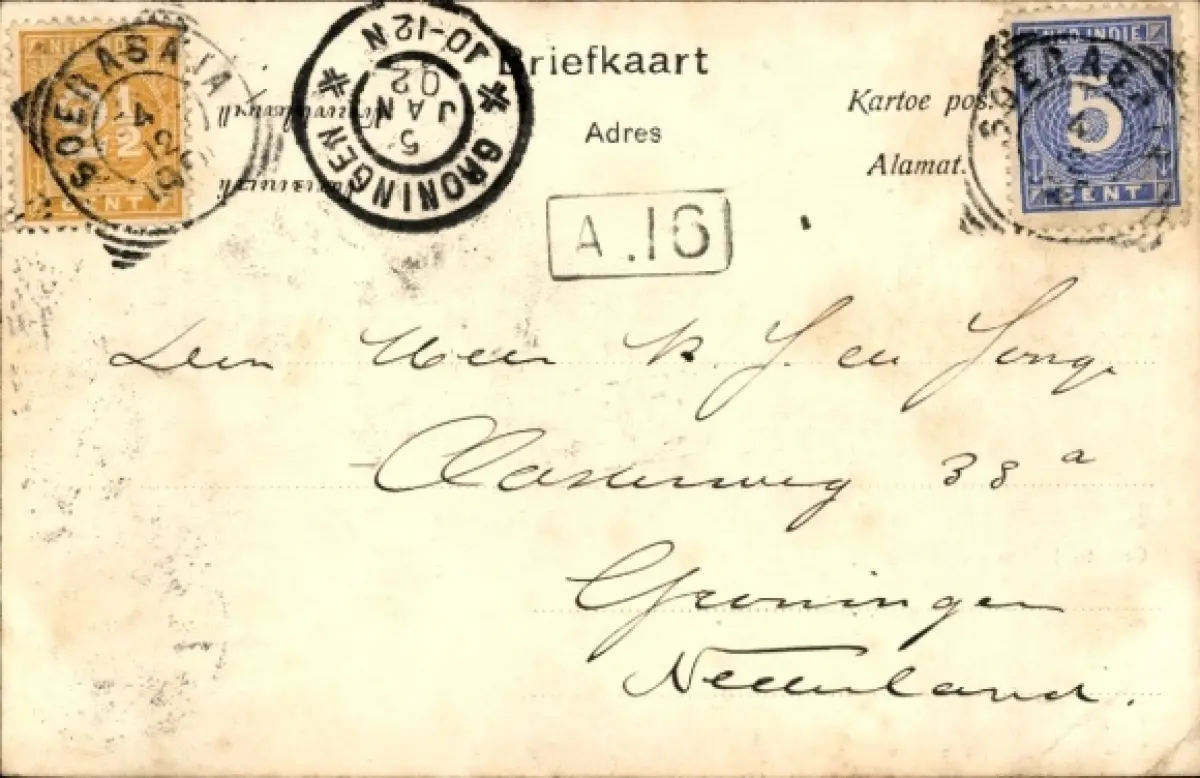 NED. INDIË
2 1/2
CENT
SOERABAJA
4
12
GRONINGEN
5
JAN
02
10-12N
Briefkaart
Adres
Kartoe pos
Alamat.
NED. INDIE
5
CENT
SOERABA
4
12
A. 16
Den Heer K. J. de Jonge
Oosterweg 38 a
Groningen
Nederland.